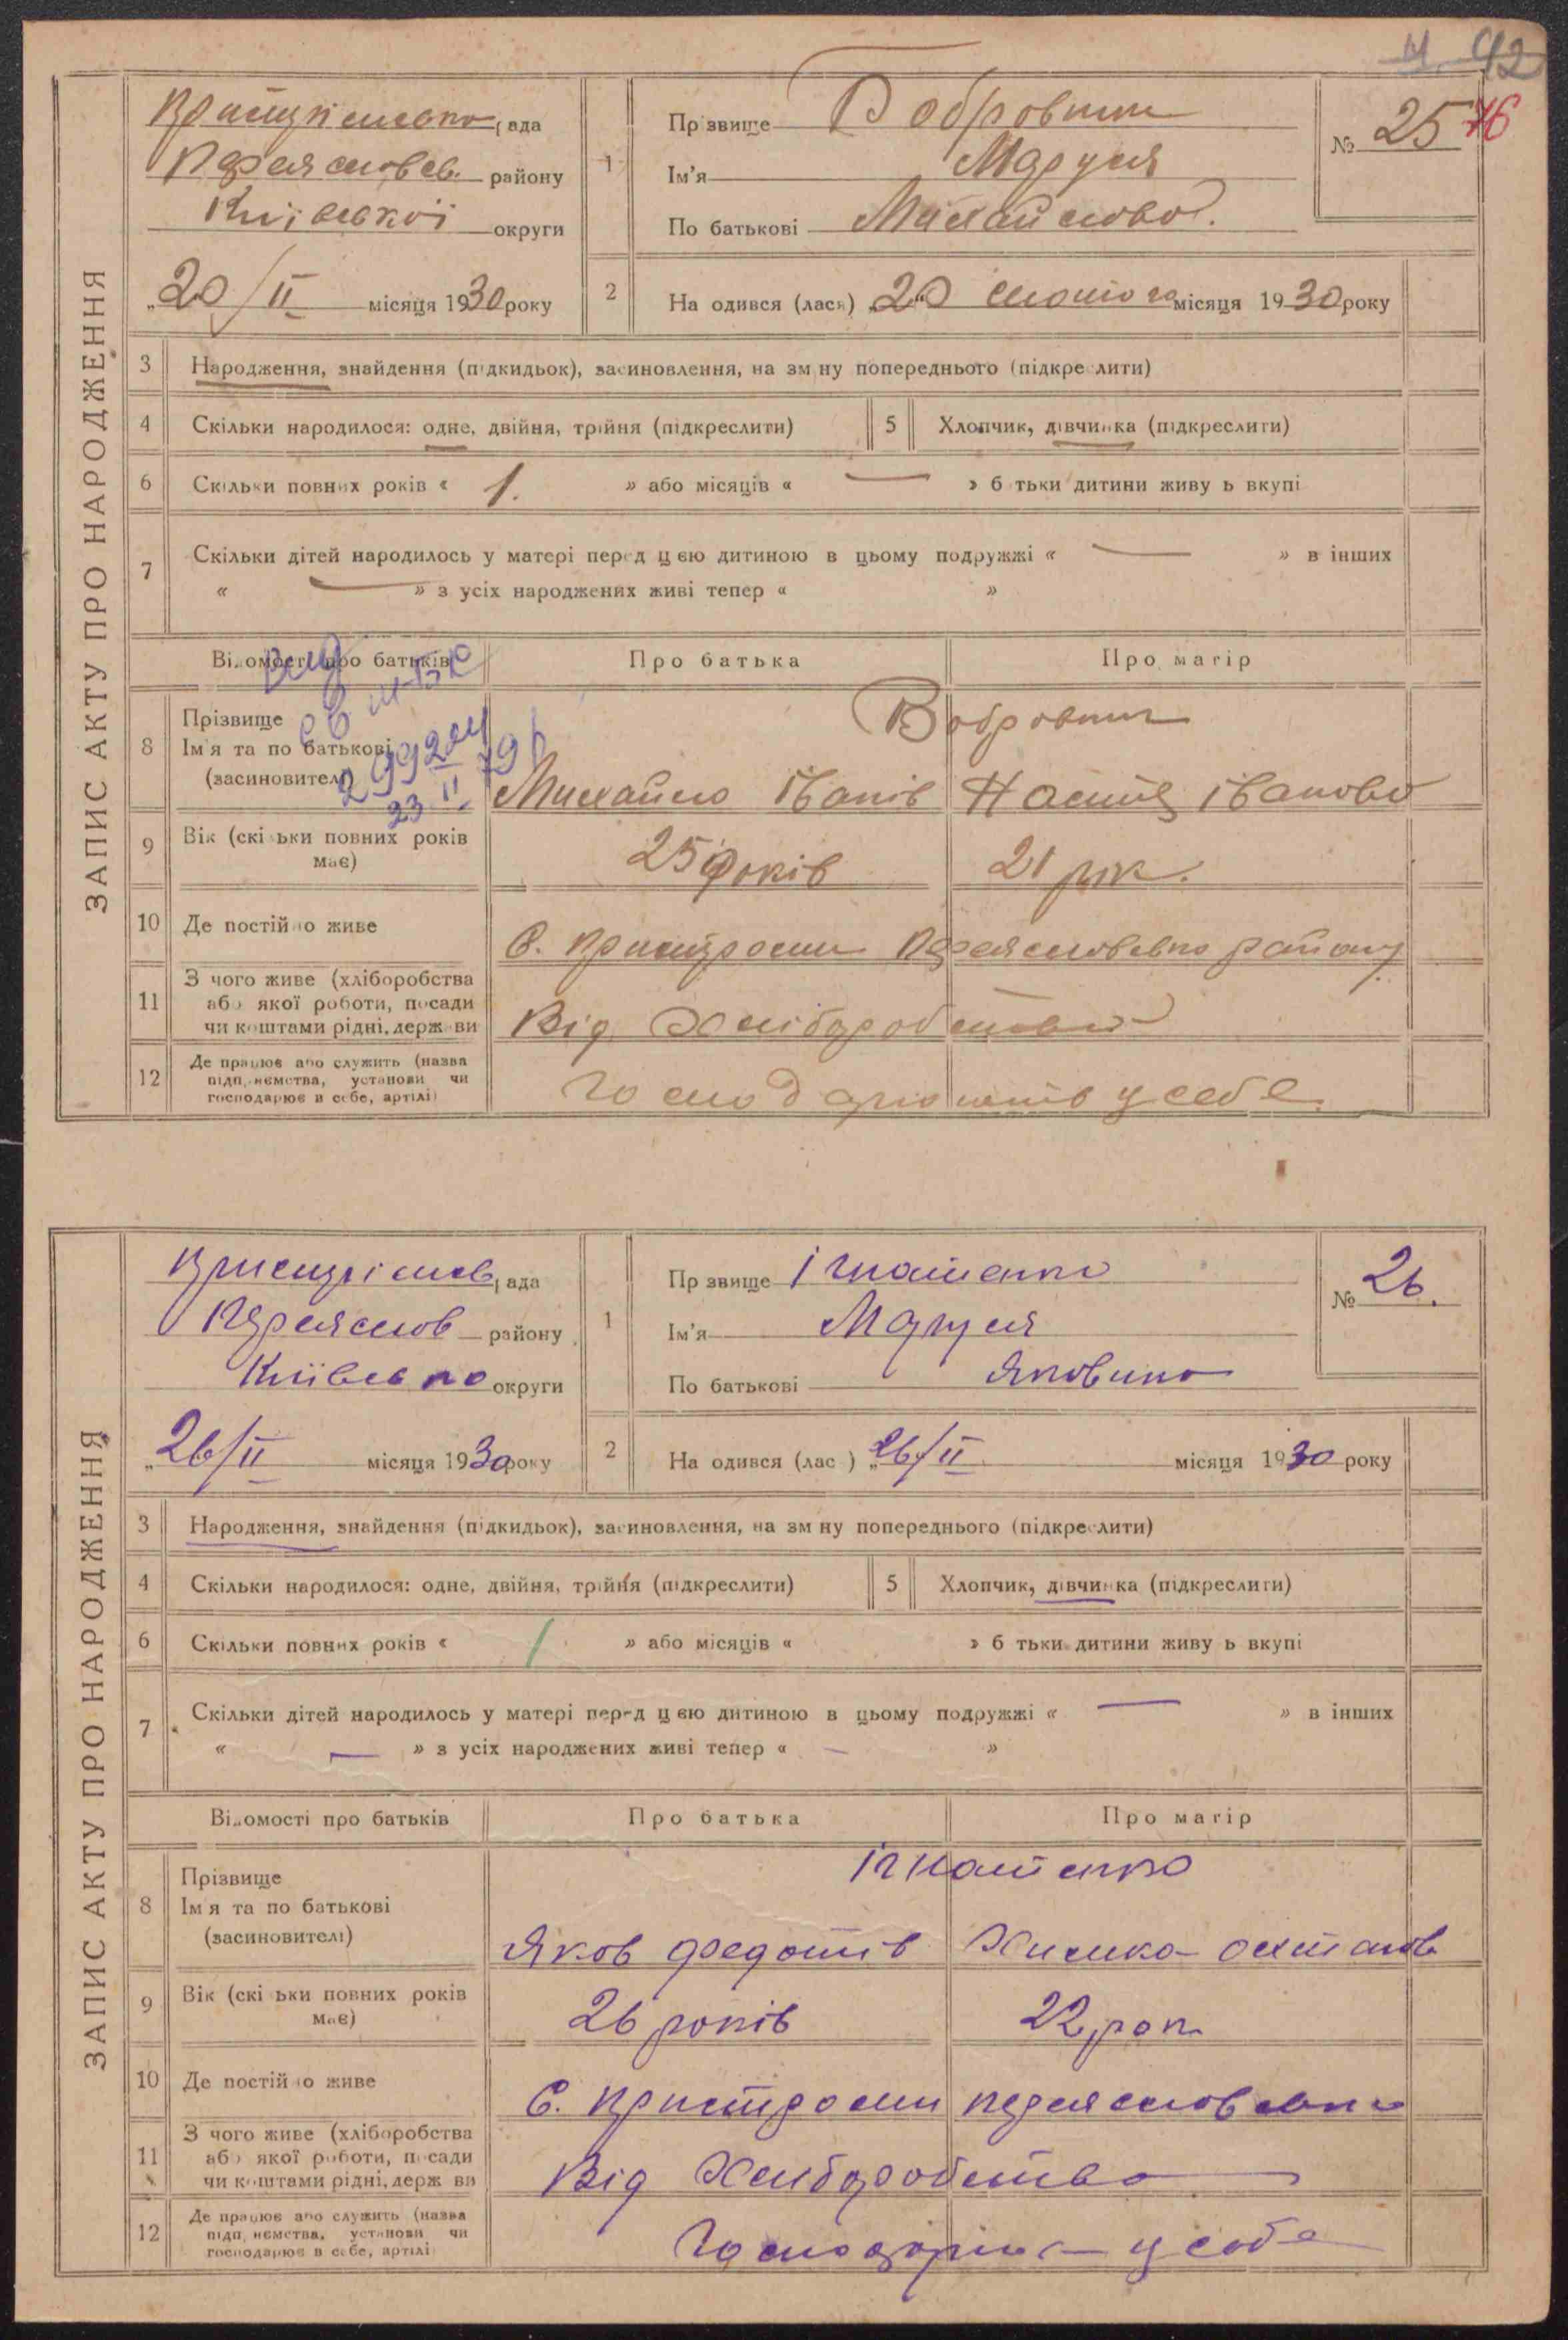 42
ЗАПИС АКТУ ПРО НАРОДЖЕННЯ
рада
Переяславськ. району
Київської округи
„20/II місяця 1930 року
1
Прізвище Бобровник
Ім'я Маруся
По батькові Михайлова.
№ 25 76
2 Народився (лася) „20" лютого місяця 1930 року
3 Народження, знайдення (підкидьок), засиновлення, на зміну попереднього (підкреслити)
4 Скільки народилося: одне, двійня, трійня (підкреслити)
5 Хлопчик, дівчинка (підкреслити)
6 Скільки повних років « 1. » або місяців « — » батьки дитини живуть вкупі
7 Скільки дітей народилось у матері перед цією дитиною в цьому подружжі « — » в інших
« — » з усіх народжених живі тепер « »
Відомості про батьків
Про батька
Про матір
8 Прізвище
Ім'я та по батькові
(засиновителі)
Бобровник
Михайло Іванів
Настя Іванова
9 Вік (скільки повних років має)
25 років
21 рік.
10 Де постійно живе
С. Пристроми Переяславсько району
11 З чого живе (хліборобства або якої роботи, посади чи коштами рідні, держави
Від Хліборобства
12 Де працює або служить (назва підприємства, установи чи господарює в себе, артілі)
Господарюють у себе
ЗАПИС АКТУ ПРО НАРОДЖЕННЯ
рада
Переяслов району
Київсько округи
„26/II місяця 1930 року
1
Прізвище Ігнатенко
Ім'я Маруся
По батькові Яковина
№ 26.
2 Народився (лася) „26/II місяця 1930 року
3 Народження, знайдення (підкидьок), засиновлення, на зміну попереднього (підкреслити)
4 Скільки народилося: одне, двійня, трійня (підкреслити)
5 Хлопчик, дівчинка (підкреслити)
6 Скільки повних років « 1 » або місяців « » батьки дитини живуть вкупі
7 Скільки дітей народилось у матері перед цією дитиною в цьому подружжі « — » в інших
« — » з усіх народжених живі тепер « — »
Відомості про батьків
Про батька
Про матір
8 Прізвище
Ім'я та по батькові
(засиновителі)
Ігнатенко
Яков Федотів
9 Вік (скільки повних років має)
26 років
22 рок
10 Де постійно живе
С. Пристроми Переяславсько
11 З чого живе (хліборобства або якої роботи, посади чи коштами рідні, держави
Від Хліборобства
12 Де працює або служить (назва підприємства, установи чи господарює в себе, артілі)
у себе